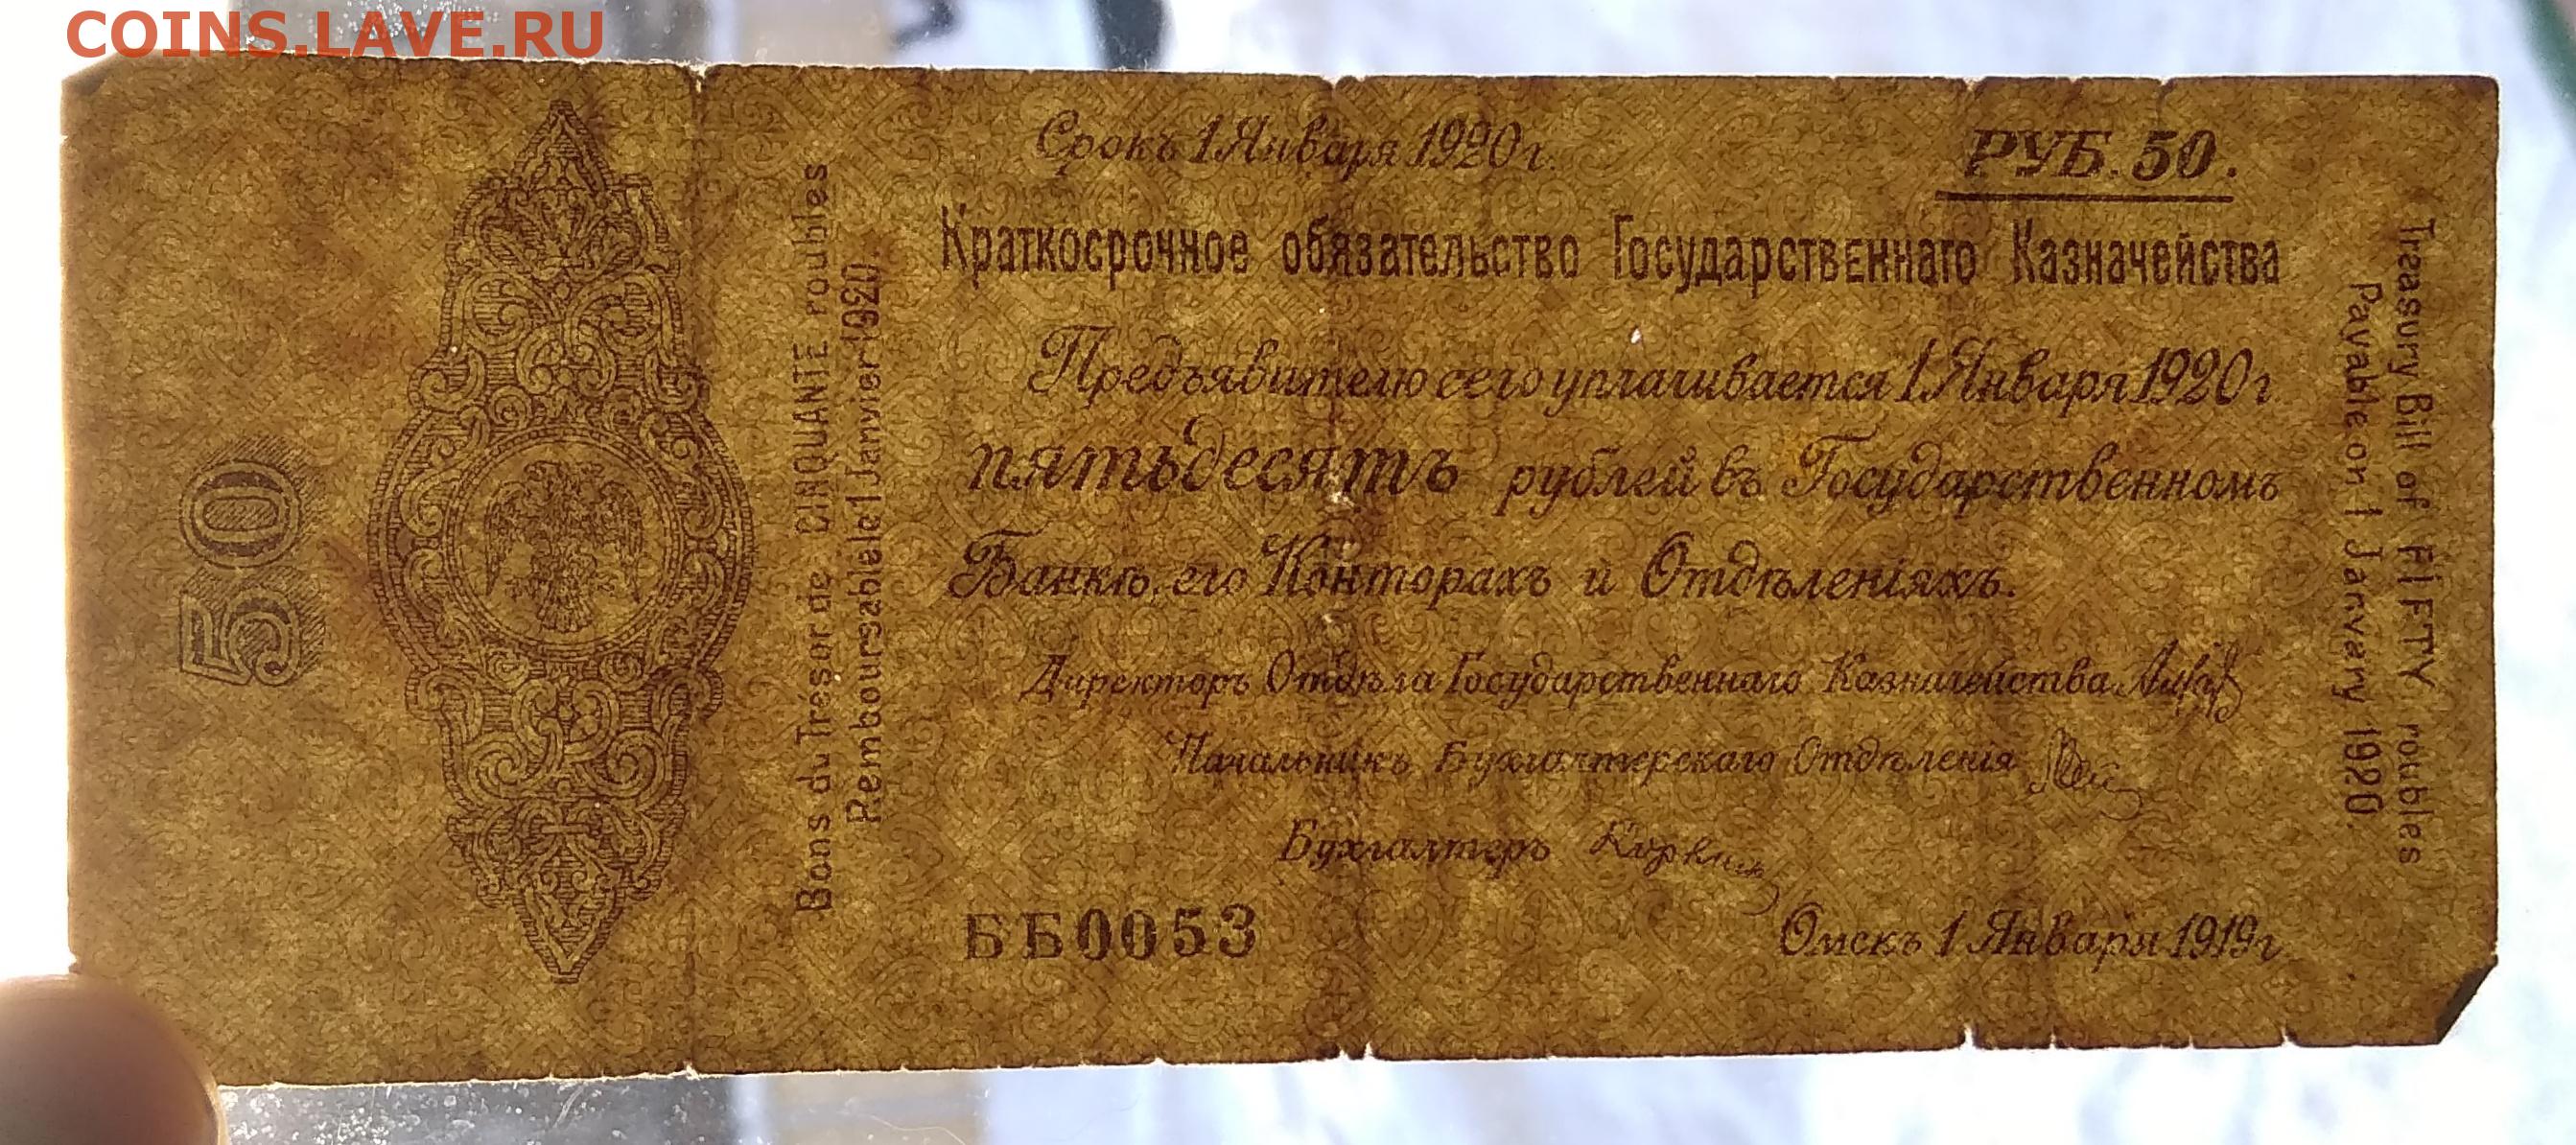 COINS.LAVE.RU
50
Bons du Trésor de CINQUANTE roubles
Remboursable le 1 Janvier 1920.
Срокъ 1 Января 1920 г.
РУБ. 50.
Краткосрочное обязательство Государственнаго Казначейства
Предъявителю сего уплачивается 1 Января 1920 г
пятьдесятъ рублей въ Государственномъ
Банкѣ, его Конторахъ и Отдѣленіяхъ.
Директоръ Отдѣла Государственнаго Казначейства
Начальникъ Бухгалтерскаго Отдѣленія
Бухгалтеръ
ББ0053
Омскъ 1 Января 1919 г.
Treasury Bill of FIFTY roubles
Payable on 1 January 1920.